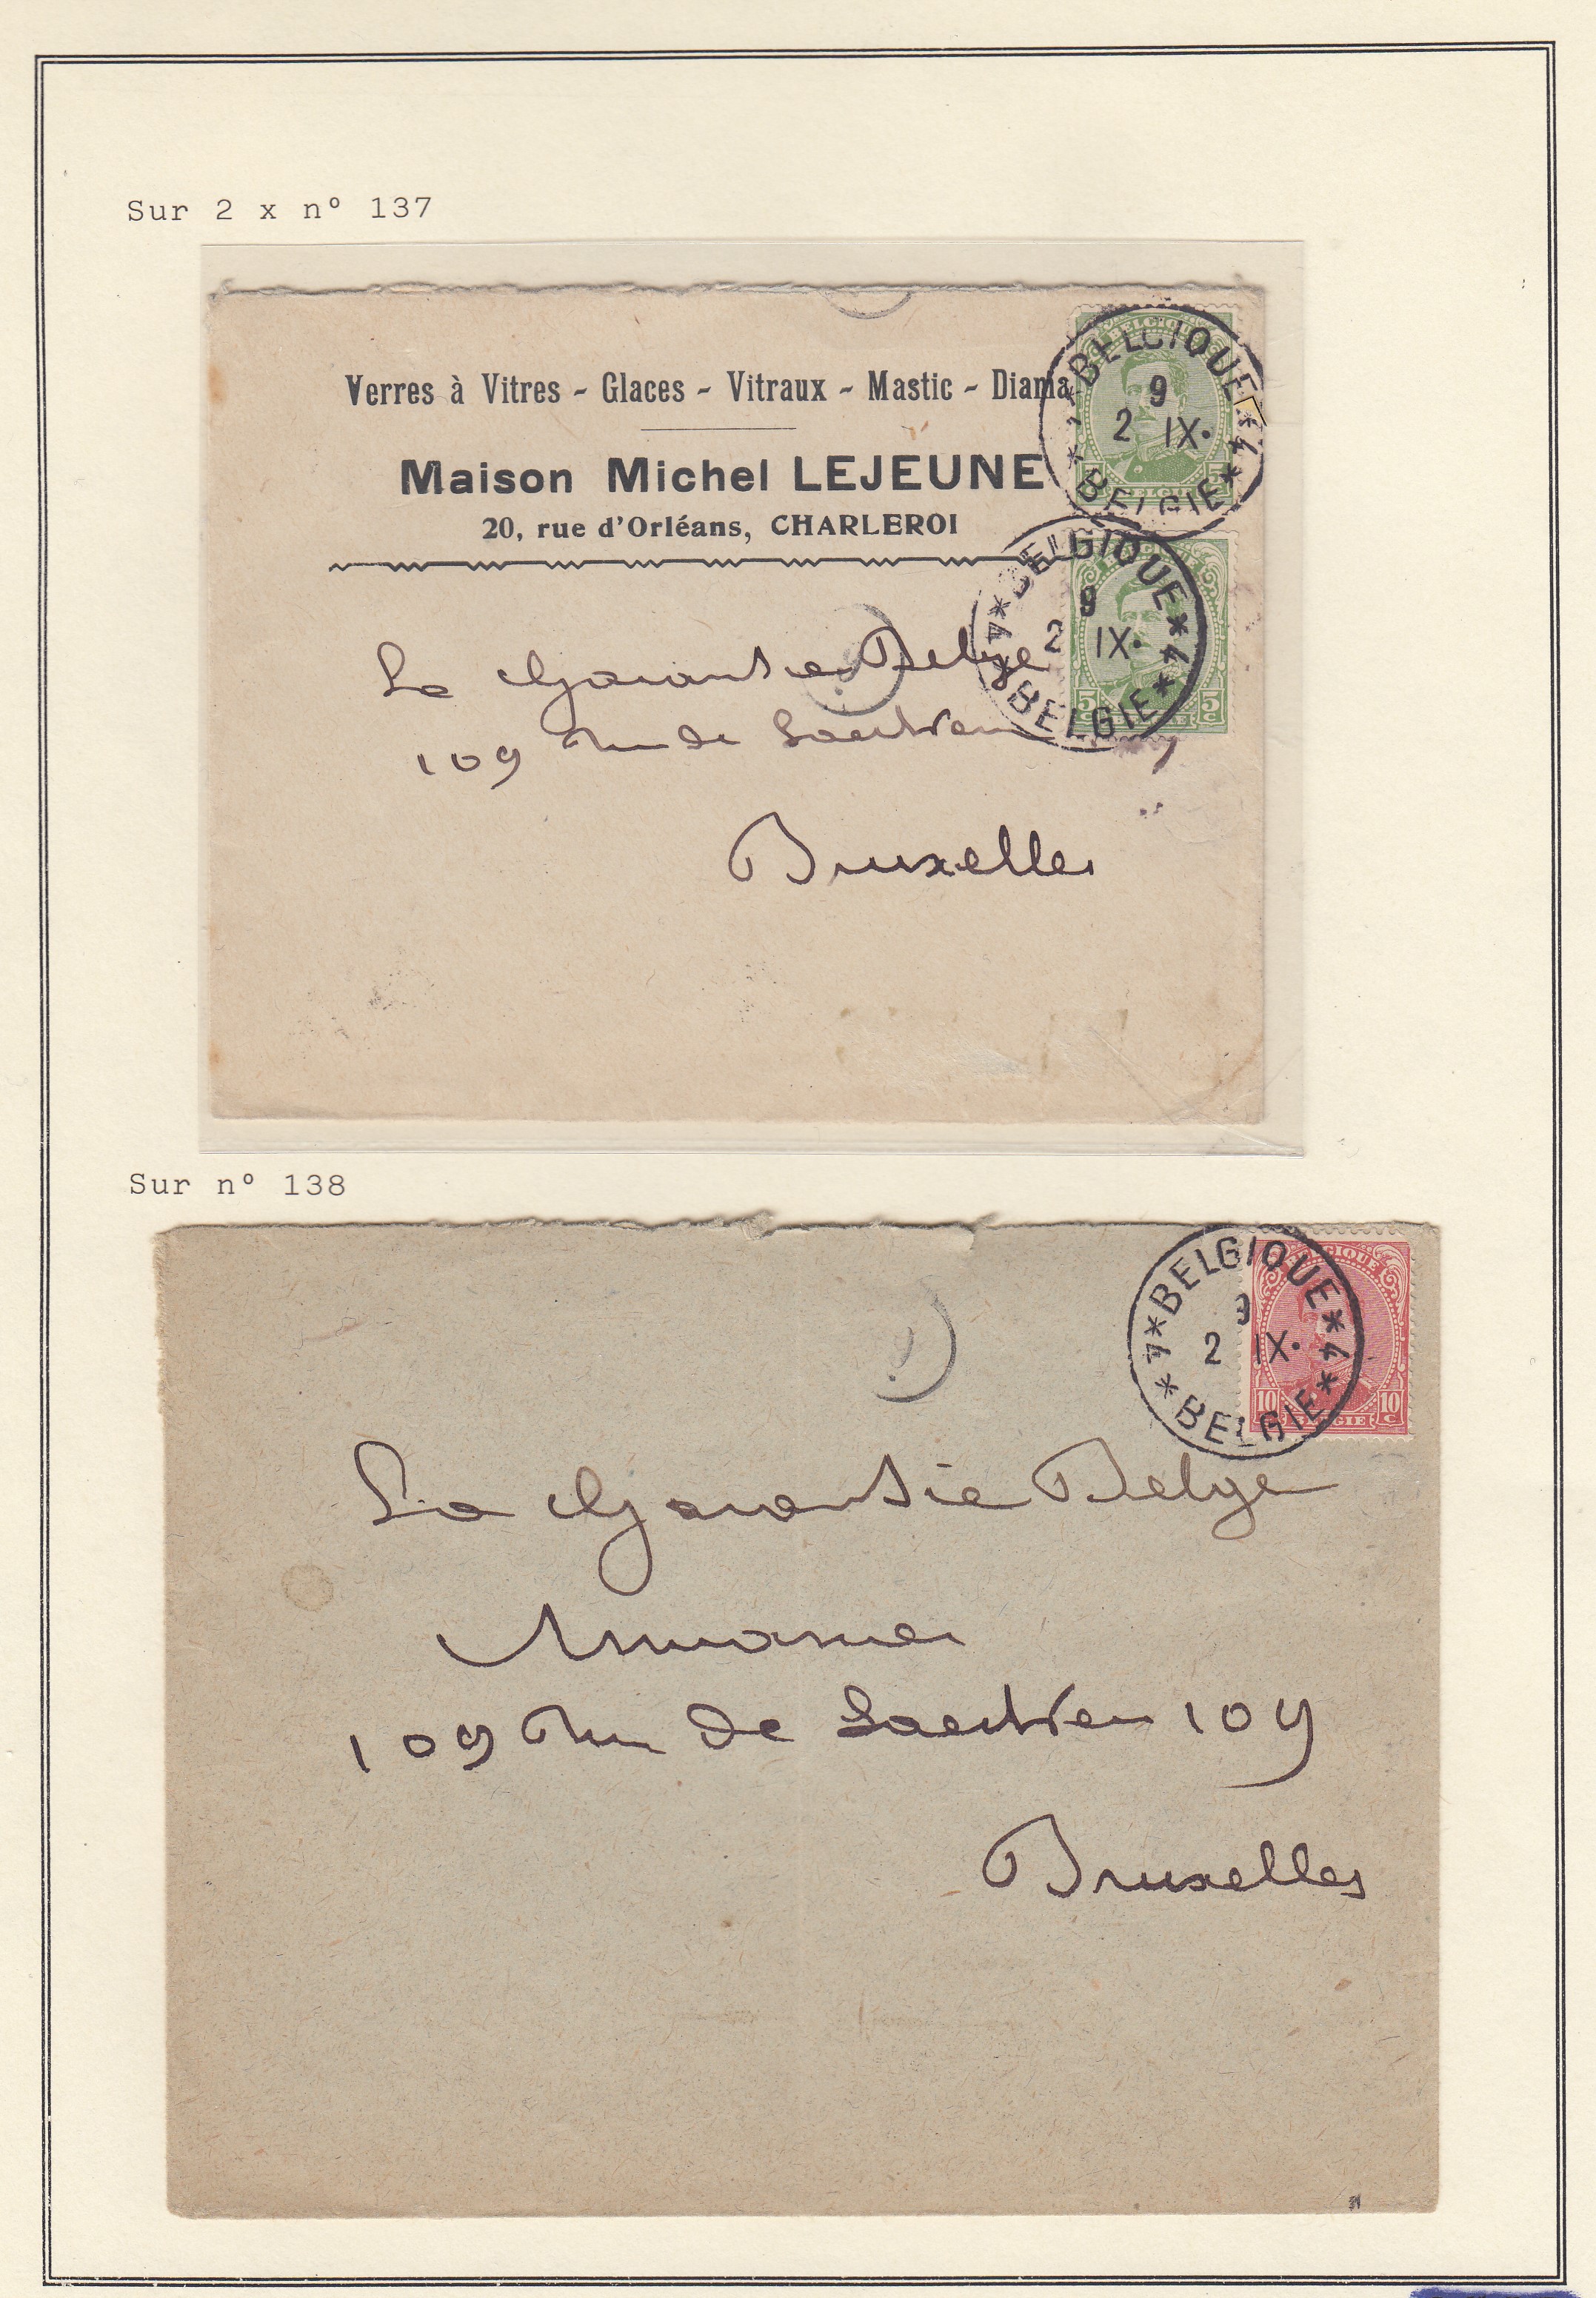 Sur 2 x nº 137
Verres à Vitres - Glaces - Vitraux - Mastic - Diama
Maison Michel LEJEUNE
20, rue d'Orléans, CHARLEROI
BELGIQUE
9
2 IX.
*4*
BELGIE
5 c BELGIE 5 c
BELGIQUE
9
2 IX.
*4*
BELGIE
5 c 5 c
La Garantie Belge
109 rue de Laeken
Bruxelles
Sur nº 138
BELGIQUE
BELGIQUE
9
2 IX.
*4*
BELGIE
10 c BELGIE 10 c
La Garantie Belge
109 rue de Laeken 109
Bruxelles